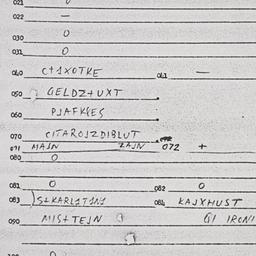 021
022 —
030 O
031 O
040 C+1XOTKE 041 —
050 GELDZ+UXT
060 PJAFKSES
070 CITAROJZDIBLUT
071 MAJN ZAJN 072 +
080 O
081 O 082 O
083 084 KAJXHUST
090 MIS+TEJN GI IRONI